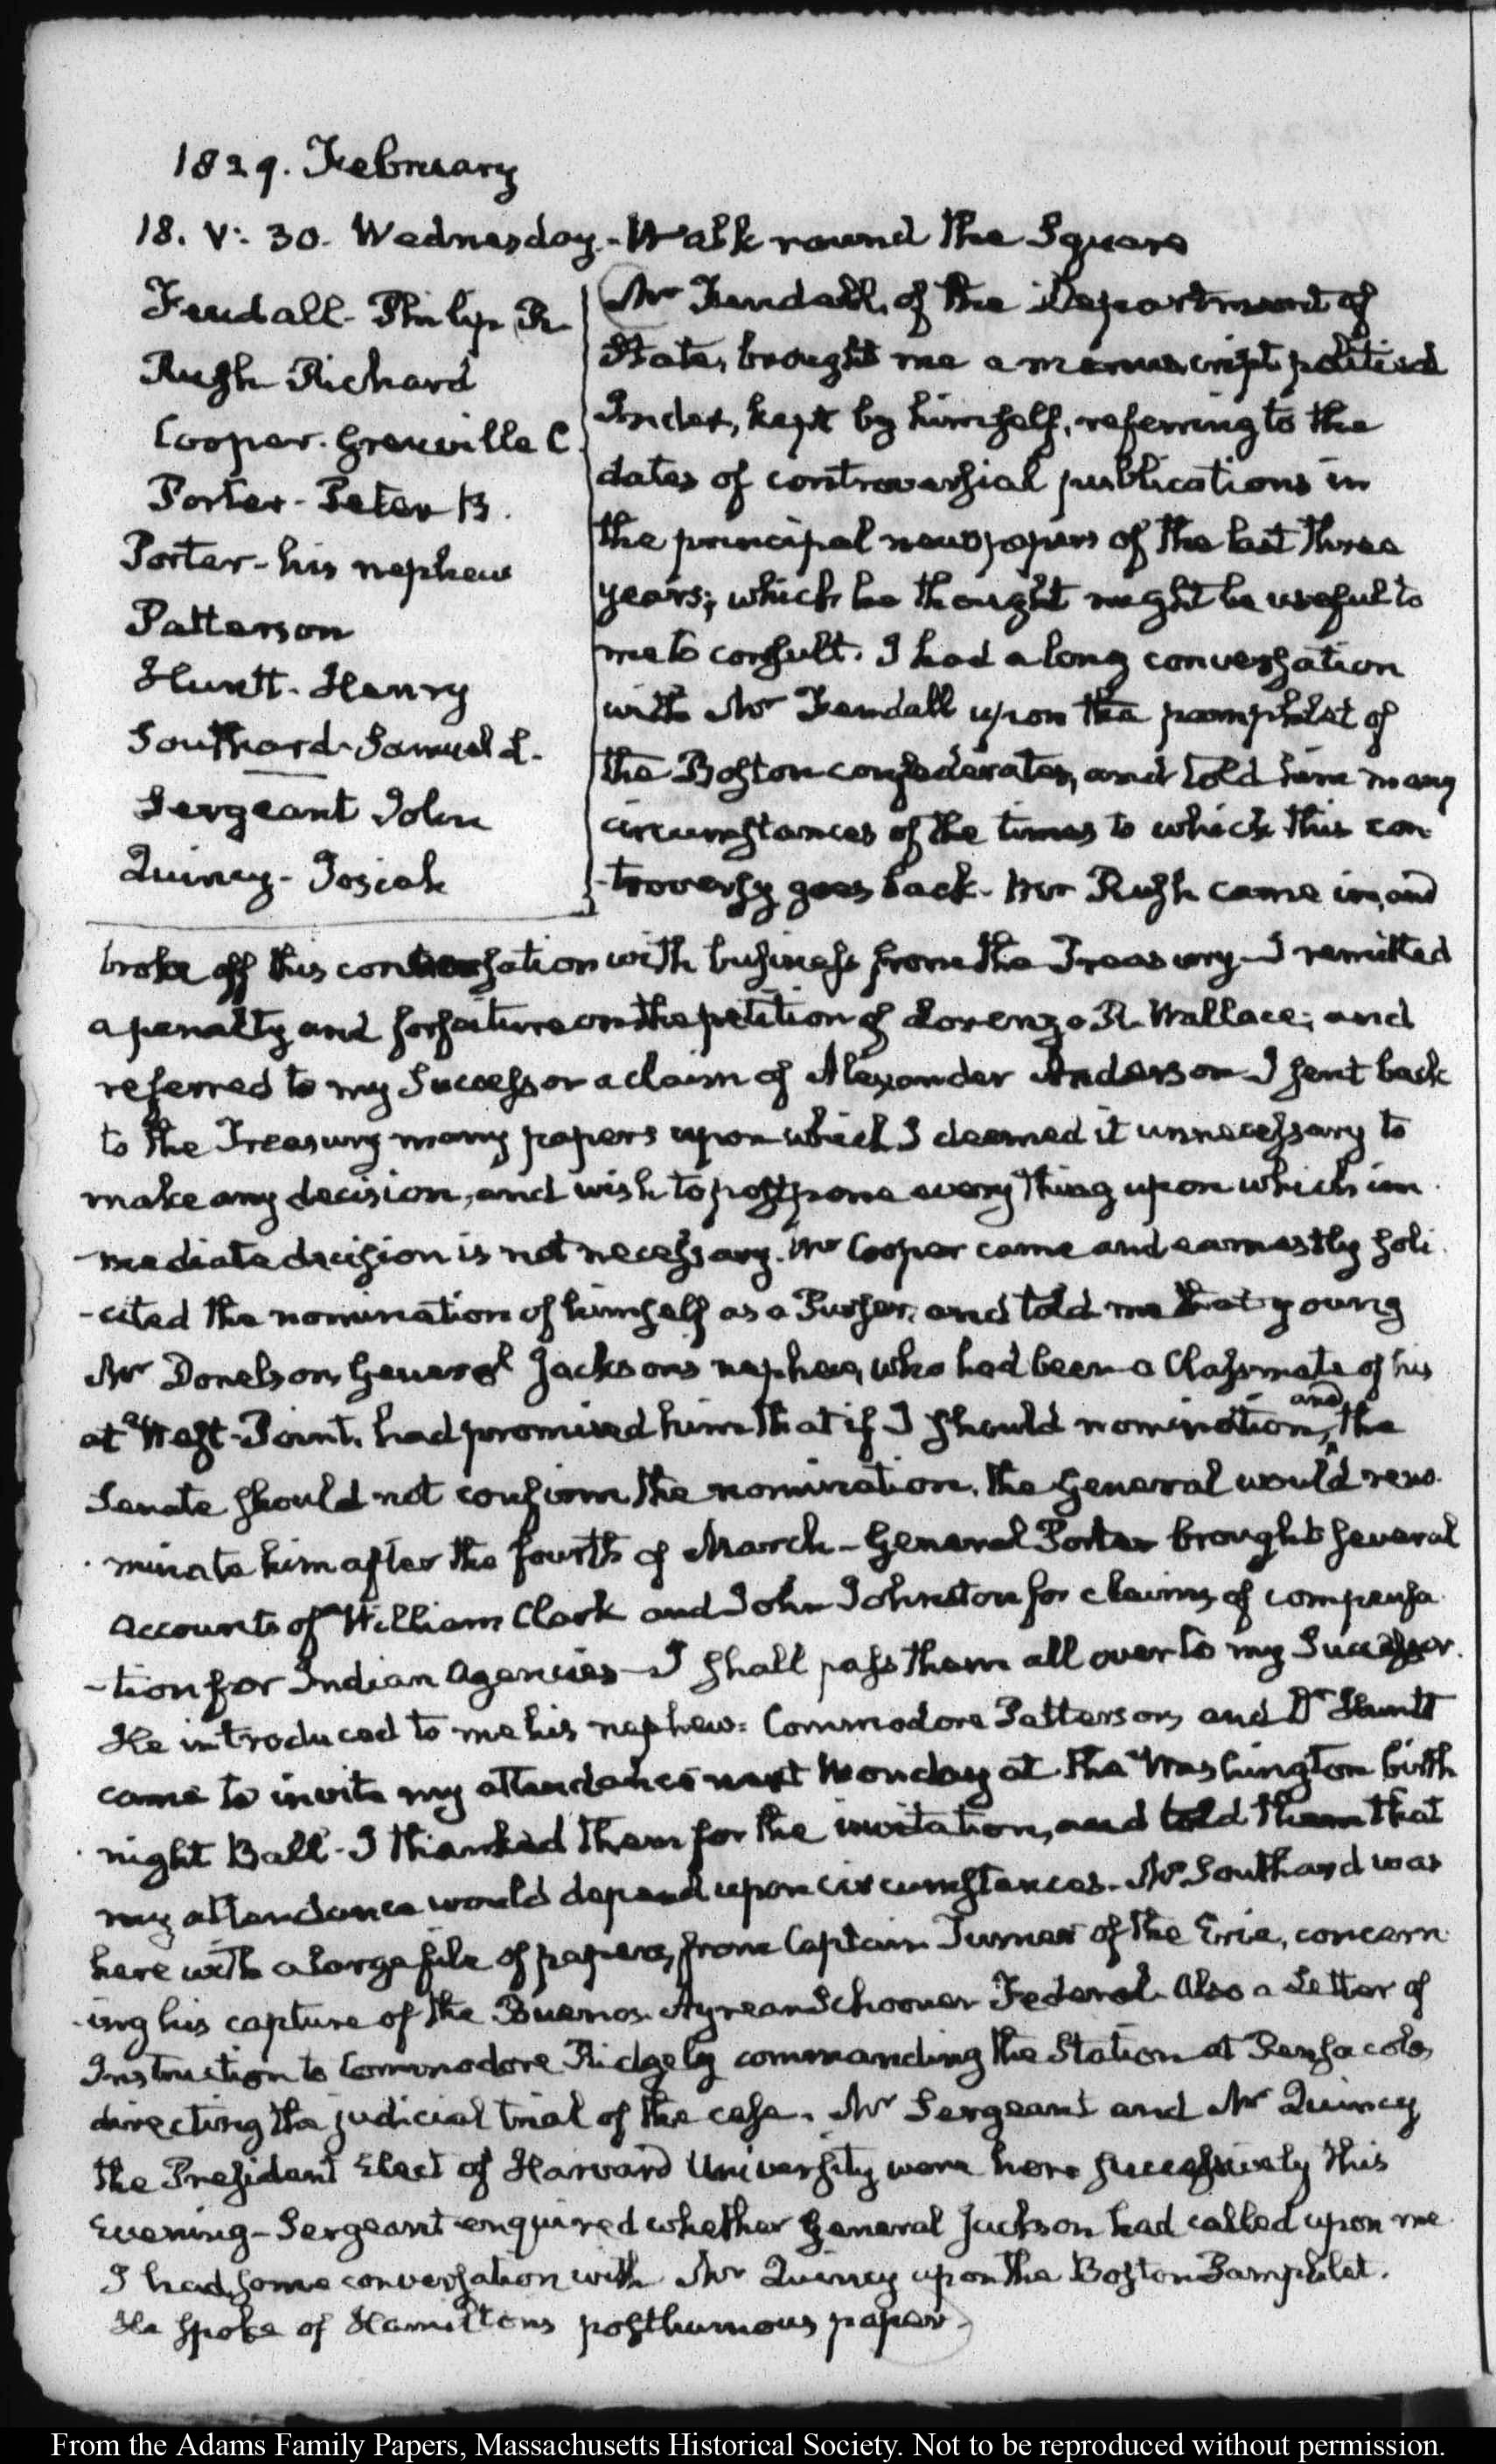 1829. February
18. V: 30. Wednesday - Walk round the Square
Fendall - Philip R
Rush Richard
Cooper. Grenville C.
Porter - Peter B.
Porter - his nephew
Patterson
Huntt - Henry
Southard - Samuel L.
Sergeant John
Quincy - Josiah
Mr Fendall, of the Department of
State, brought me a manuscript political
Index, kept by himself, referring to the
dates of controversial publications in
the principal newspapers of the last three
years; which he thought might be useful to
me to consult. I had a long conversation
with Mr Fendall upon the pamphlet of
the Boston confederates, and told him many
circumstances of the times to which this con
-troversy goes back - Mr Rush came in, and
broke off this conversation with business from the Treasury - I remitted
a penalty and forfeiture on the petition of Lorenzo R. Wallace; and
referred to my Successor a claim of Alexander Anderson - I sent back
to the Treasury many papers upon which I deemed it unnecessary to
make any decision, and wish to postpone every thing upon which im
-mediate decision is not necessary. Mr Cooper came and earnestly soli
-cited the nomination of himself as a Purser, and told me that young
Mr Donelson, General Jacksons nephew, who had been a Classmate of his
at West-Point, had promised him that if I should nomination, and the
Senate should not confirm the nomination, the General would reno
-minate him after the fourth of March - General Porter brought several
accounts of William Clark and John Johnston for claims of compensa
-tion for Indian Agencies - I shall pass them all over to my Successor.
He introduced to me his nephew: Commodore Patterson, and Dr Huntt
came to invite my attendance next Monday at the Washington birth
night Ball - I thanked them for the invitation, and told them that
my attendance would depend upon circumstances. Mr Southard was
here with a large file of papers, from Captain Turner of the Erie, concern
-ing his capture of the Buenos-Ayrean Schooner Federal. Also a Letter of
Instruction to Commodore Ridgely commanding the Station at Pensacola,
directing the judicial trial of the case. Mr Sergeant and Mr Quincy
the President Elect of Harvard University were here successively this
Evening - Sergeant enquired whether General Jackson had called upon me
I had some conversation with Mr Quincy upon the Boston Pamphlet.
He spoke of Hamiltons posthumous paper.
From the Adams Family Papers, Massachusetts Historical Society. Not to be reproduced without permission.